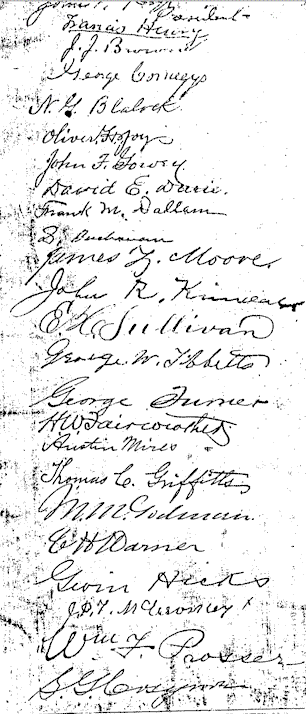 President
Francis Henry
J. J. Browne
George Comegys
N. G. Blalock
Oliver H. Joy
John F. Gowey
David E. Durie.
Frank M. Dallam
Buchanan
James Z. Moore.
John R. Kinnear
E H Sullivan
George W. Tibbetts
George Turner
H W Fairweather
Austin Mires
Thomas C. Griffitts
M. M. Godman.
C H Warner
Gwin Hicks
J. P. T. McCroskey
Wm F. Prosser